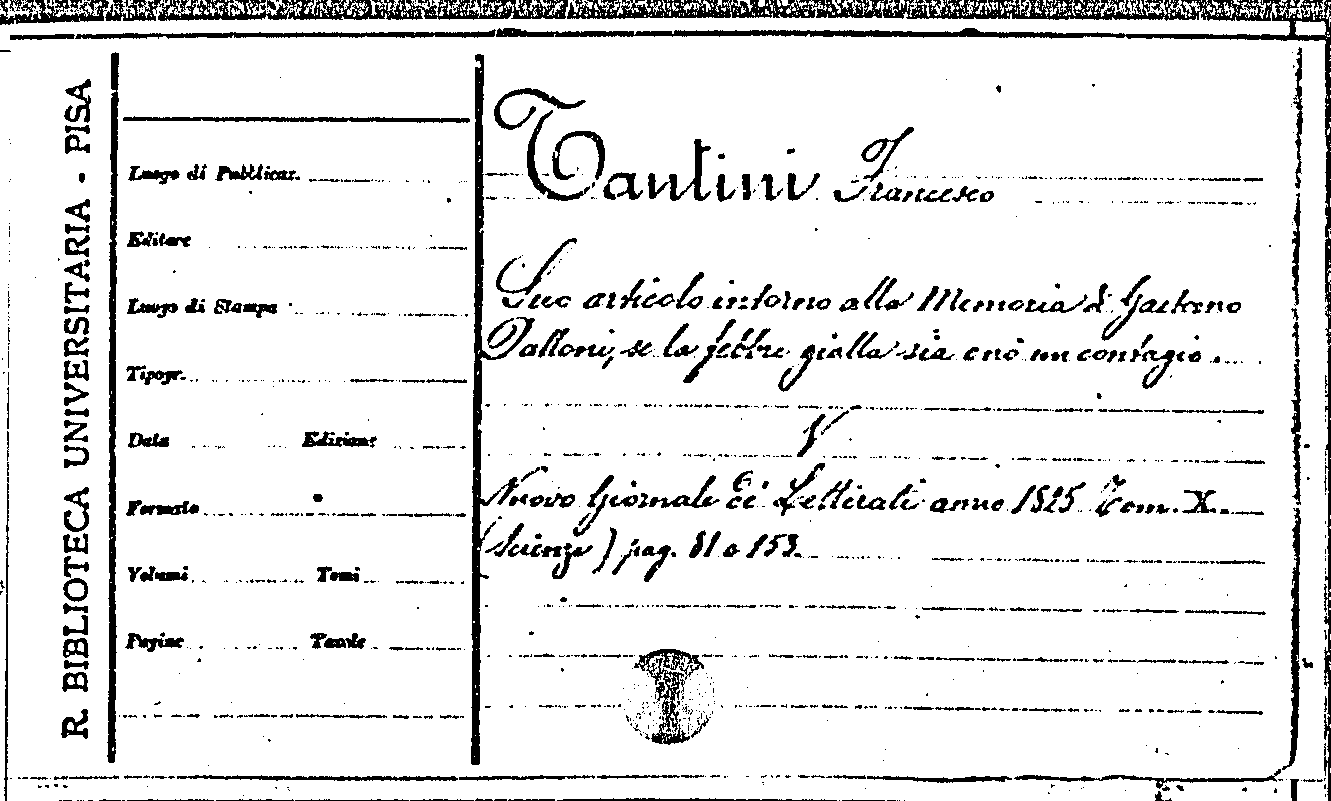 R. BIBLIOTECA UNIVERSITARIA - PISA
Luogo di Pubblicaz.
Editore
Luogo di Stampa
Tipogr.
Data Edizione
Formato
Volumi Tomi
Pagine Tavole
Tantini Francesco
Suo articolo intorno alla Memoria di Gaetano
Palloni, se la febbre gialla sia o nò un contagio.
V
Nuovo Giornale de' Letterati anno 1825 Tom. X.
(Scienze) pag. 81 a 153.